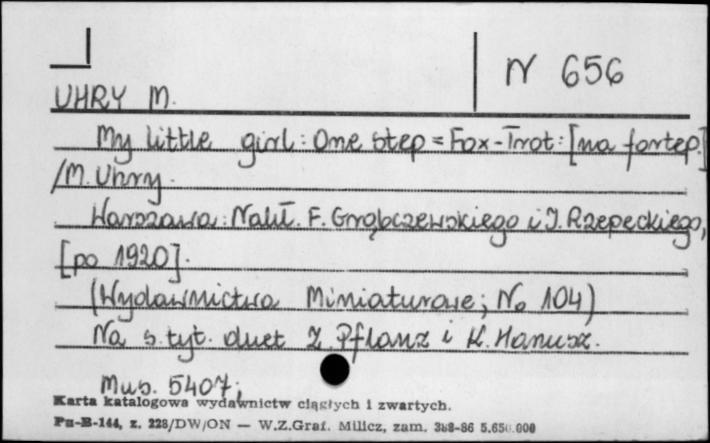 N 656
UHRY M.
My little girl : One step = Fox-Trot : [na fortep.]
/M. Uhry.
Warszawa : Nakł. F. Grąbczewskiego i J. Rzepeckiego,
[po 1920].
(Wydawnictwa Miniaturowe ; No 104)
Na s.tyt. duet Z. Pflanz i K. Hanusz.
Mus. 5407;
Karta katalogowa wydawnictw ciągłych i zwartych.
Pu-B-144, z. 228/DW/ON — W.Z.Graf. Milicz, zam. 388-86 5.650.000